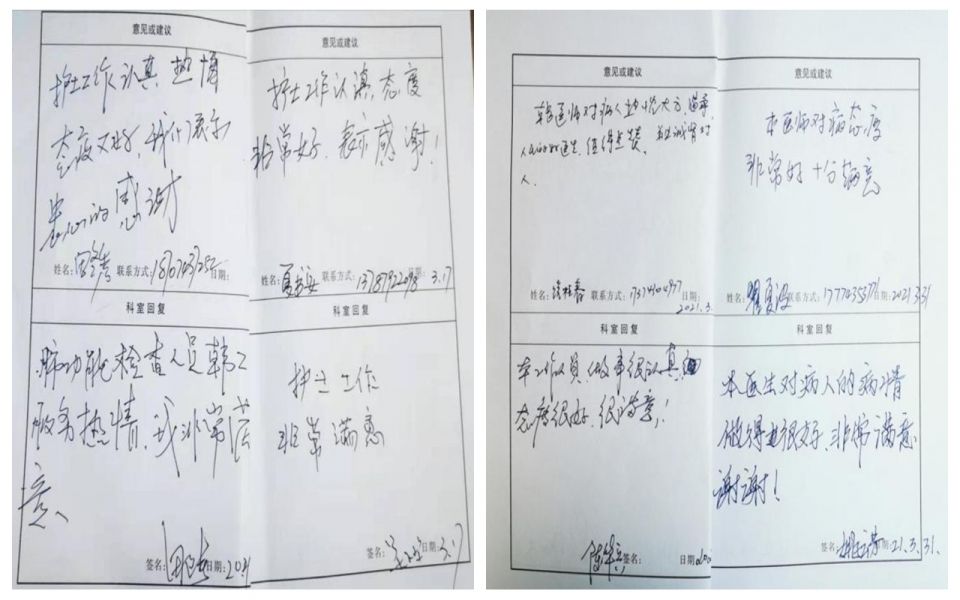 意见或建议
护士工作认真 热情
态度又好，我们表示
衷心的感谢
姓名： 联系方式： 日期：
科室回复
肺功能检查人员韩工
服务热情，我非常满
意、
签名： 日期：
意见或建议
护士工作认真，态度
非常好，表示感谢！
姓名： 联系方式：13787922098 3.17
科室回复
护士工作
非常满意
签名： 日期：3.17
意见或建议
医师对病人
医生，值得点赞，
人．
姓名： 联系方式： 日期：
2021.3.
科室回复
工作认真，做事很认真
态度很好，很满意！
签名： 日期
意见或建议
本医师对病态度
非常好 十分满意
姓名： 联系方式： 日期：2021.3.31
科室回复
本医生对病人的病情
做得也很好，非常满意
谢谢！
签名： 日期：21.3.31.